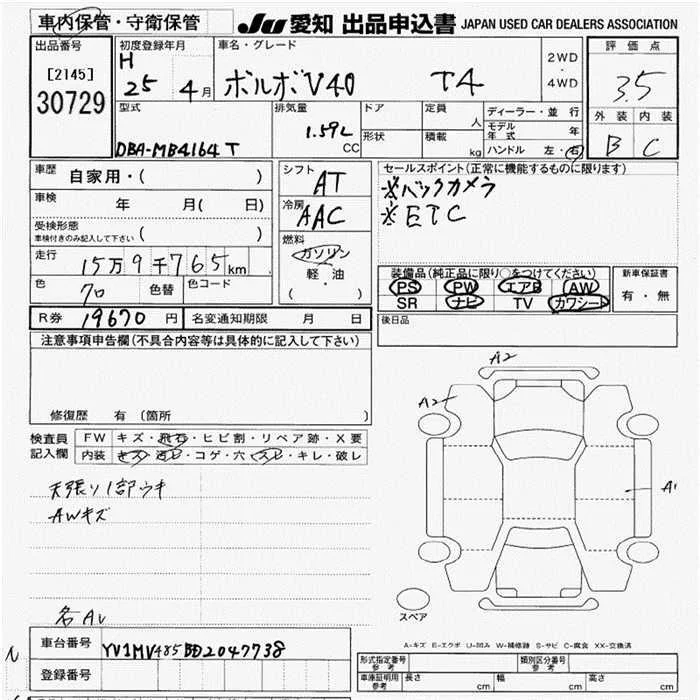 車内保管・守衛保管
JU 愛知 出品申込書 JAPAN USED CAR DEALERS ASSOCIATION
出品番号
[2145]
30729
初度登録年月
H
25 4月
車名・グレード
ボルボV40 T4
2WD
・
4WD
評価点
3.5
外装 内装
B C
型式
DBA-MB4164T
排気量
1.59L
CC
ドア
形状
定員
人
積載
kg
ディーラー・並行
モデル
年式 年
ハンドル 左・右
車歴
自家用・( )
車検
年 月( 日)
受検形態
車検付きのみ記入して下さい ( )
走行
15万9千765km
色
クロ
色替
色コード
シフト
AT
冷房
AAC
燃料
ガソリン
軽・油
( )
セールスポイント(正常に機能するものに限ります)
※バックカメラ
※ETC
装備品(純正品に限り○をつけてください)
PS PW エアB AW
SR ナビ TV カワシート
新車保証書
有・無
R券 19670 円
名変通知期限 月 日
後日品
注意事項申告欄(不具合内容等は具体的に記入して下さい)
修復歴 有(箇所 )
検査員
記入欄
FW キズ・飛石・ヒビ割・リペア跡・X要
内装 キズ・汚レ・コゲ・穴・スレ・キレ・破レ
天張り1部ウキ
AWキズ
各AU
A2
A2
A1
スペア
A-キズ E-エクボ U-凹み W-補修跡 S-サビ C-腐食 XX-交換済
車台番号
YV1MV485BD2047738
登録番号
形式指定番号
参考
類別区分番号
参考
車庫証明用
参考
長さ cm
幅 cm
高さ cm